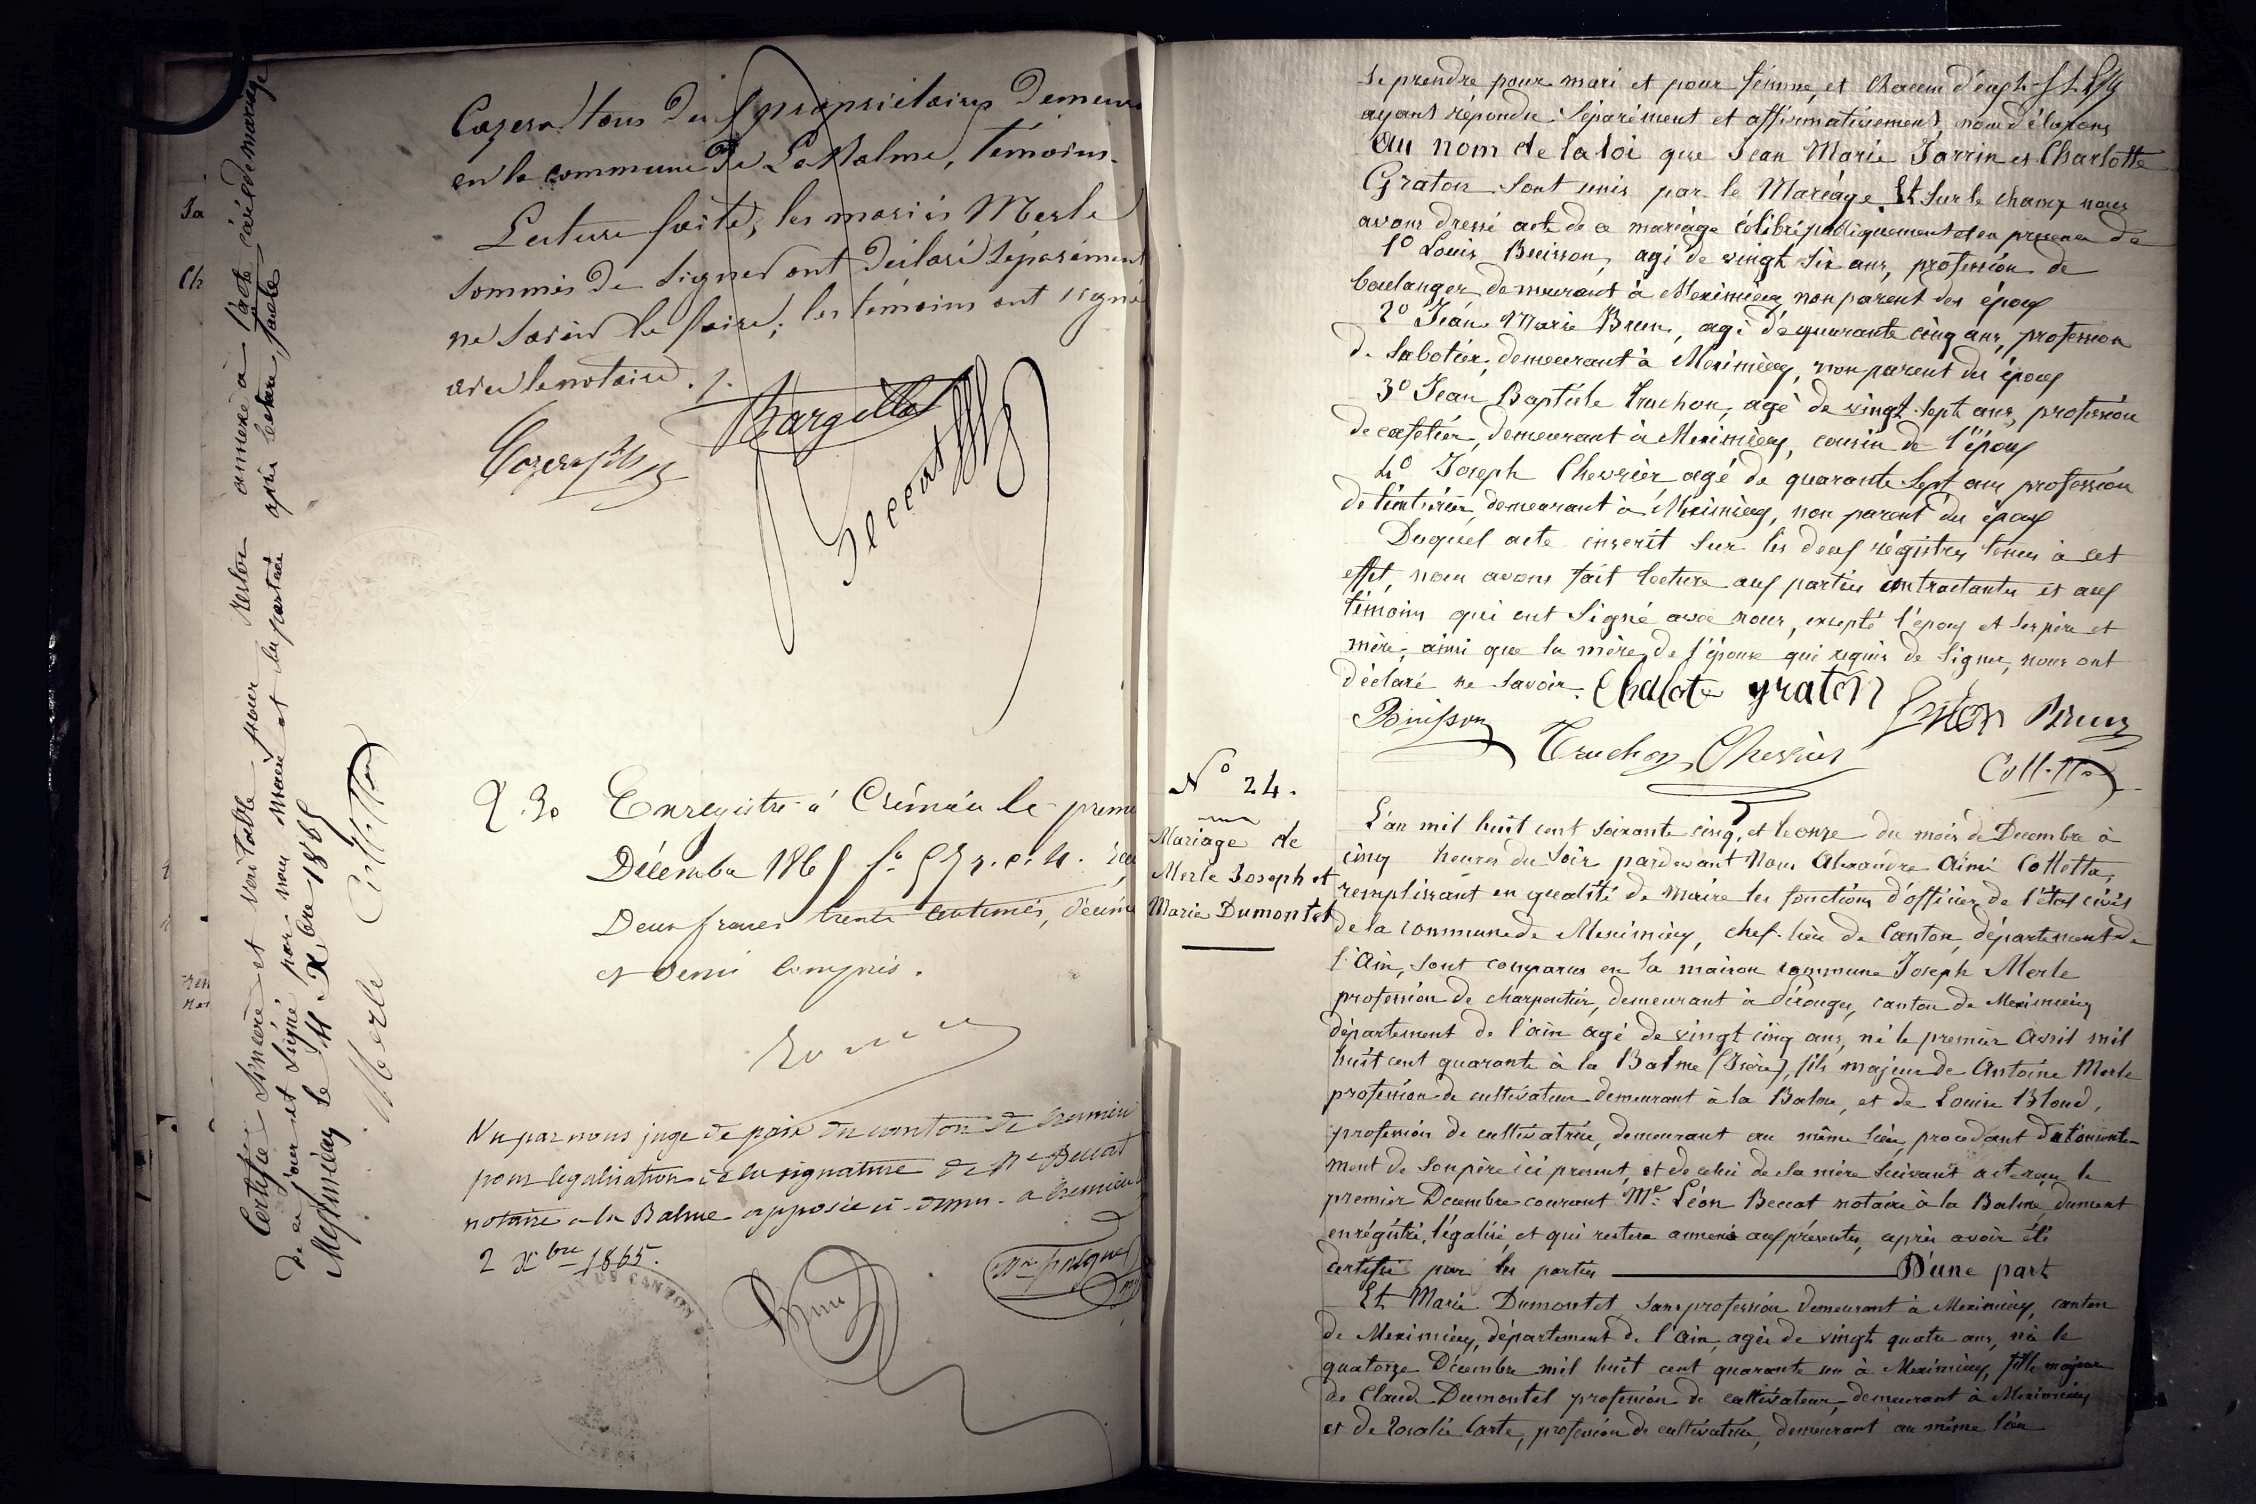 Cozera, tous deux propriétaires demeura
en la commune de La Balme, témoins.
Lecture faite, les mariés Merle
sommés de signer ont déclaré séparément
ne savoir le faire; les témoins ont signé
avec le notaire.
Cozera fils
Bargillat
Beccat
2.30 Enregistré à Crémieu le premier
Décembre 1865 fo
Deux francs trente centimes, décime
et demi compris.
Vu par nous juge de paix du canton de Crémieu
pour légalisation de la signature de Me Beccat
notaire à la Balme apposée ci-dessus. a Cremieu
2 Xbre 1865.
DU CANTON
Certifié sincère et véritable pour rester annexé à l'acte civil de mariage
de ce jour et signé par nous maire et les parties après lecture faite
Meximieux le 11 Xbre 1865
Merle Colletta
Ja
Ch
se prendre pour mari et pour femme, et chacun d'eux
ayant répondu séparément et affirmativement, nous déclarons
Au nom de la loi que Jean Marie Jarrin et Charlotte
Graton sont unis par le Mariage. Et sur le champ nous
avons dressé acte de ce mariage célébré publiquement et en présence de
1o Louis Buisson, agé de vingt six ans, profession de
boulanger, demeurant à Meximieux, non parent des époux
2o Jean Marie Brun, agé de quarante cinq ans, profession
de sabotier, demeurant à Meximieux, non parent des époux
3o Jean Baptiste Truchon, agé de vingt-sept ans, profession
de cafetier, demeurant à Meximieux, cousin de l'époux
4o Joseph Chevrier agé de quarante sept ans profession
de teinturier, demeurant à Meximieux, non parent des époux
Duquel acte inscrit sur les deux régistres tenus à cet
effet, nous avons fait lecture aux parties contractantes et aux
témoins qui ont signé avec nous, excepté l'époux et ses père et
mère, ainsi que la mère de l'épouse qui requis de signer, nous ont
déclaré ne savoir. Chalote graton
Buisson Graton Brun
Truchon Chevrier Colletta
No 24.
Mariage de
Merle Joseph et
Marie Dumontet
L'an mil huit cent soixante cinq, et le onze du mois de Décembre à
cinq heures du soir pardevant Nous Alexandre Aimé Colletta,
remplissant en qualité de maire les fonctions d'officier de l'état civil
de la commune de Meximieux, chef-lieu de Canton, département de
l'Ain, sont comparus en la maison commune Joseph Merle
profession de charpentier, demeurant à Pérouges, canton de Meximieux
département de l'ain agé de vingt cinq ans, né le premier Avril mil
huit cent quarante à la Balme (Isère), fils majeur de Antoine Merle
profession de cultivateur demeurant à la Balme, et de Louise Blond,
profession de cultivatrice, demeurant au même lieu, procédant du consente-
ment de son père ici présent, et de celui de sa mère suivant acte reçu le
premier Décembre courant Me. Léon Beccat notaire à la Balme, dument
enrégistré, légalisé, et qui restera annexé aux présentes, après avoir été
certifié par les parties D'une part
Et Marie Dumontet sans profession demeurant à Meximieux, canton
de Meximieux, département de l'Ain, agée de vingt quatre ans, née le
quatorze Décembre mil huit cent quarante un à Meximieux, fille majeure
de Claude Dumontet profession de cultivateur, demeurant à Meximieux
et de Rosalie Carte, profession de cultivatrice, demeurant au même lieu